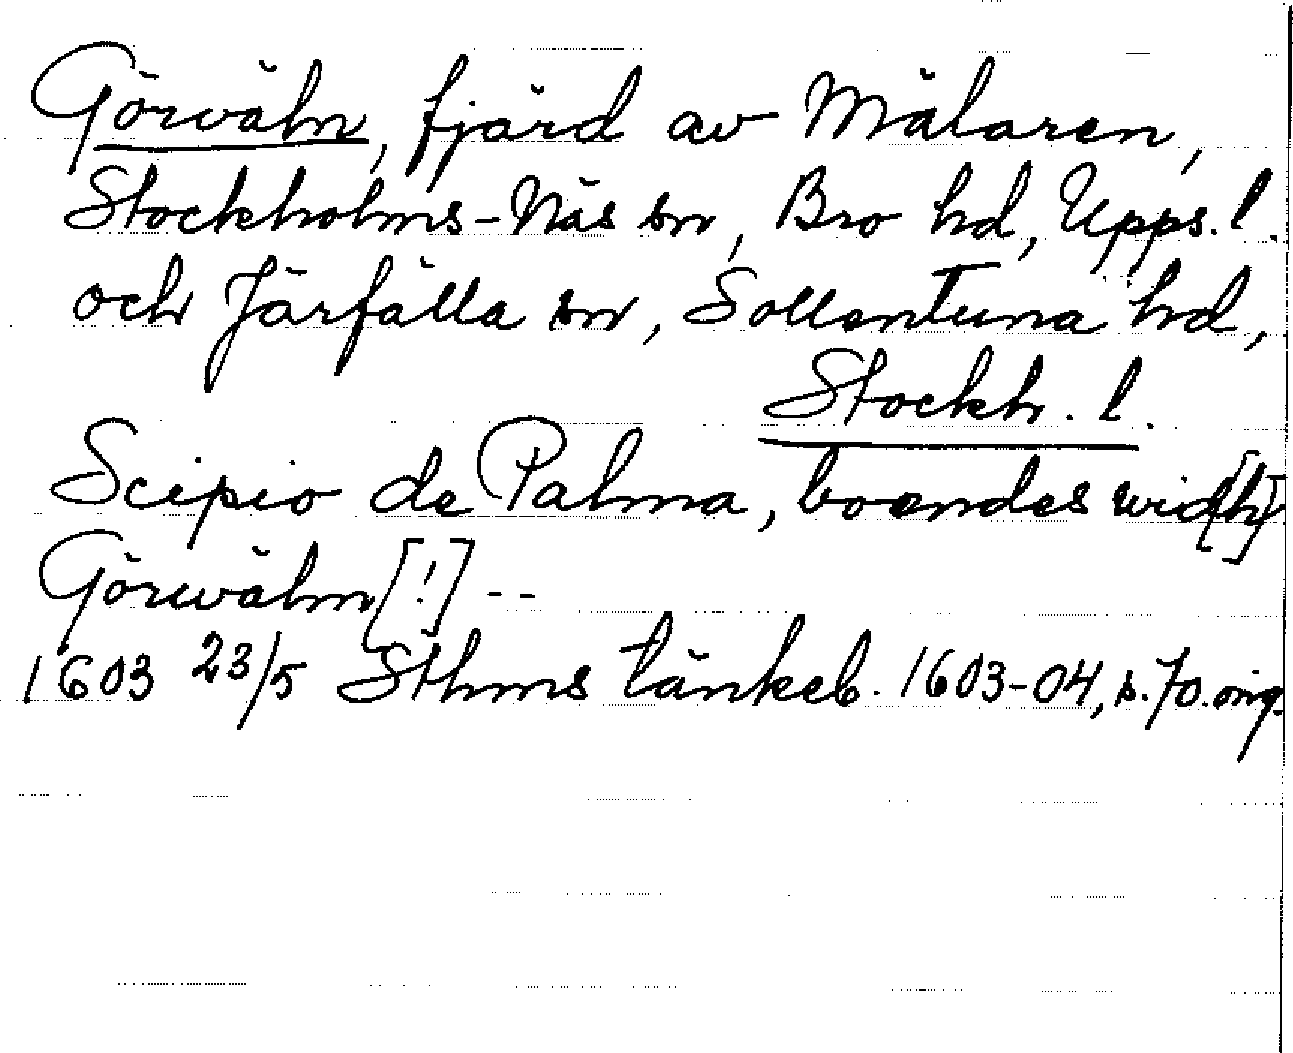 Görväln, fjärd av Mälaren,
Stockholms-Näs sn, Bro hd, Upps. l.
och Järfälla sn, Sollentuna hd,
Stockh. l.
Scipio de Palma, boendes wid[h]
Görwälm[!] --
1603 23/5 Sthms tänkeb. 1603-04, s. 70. orig.